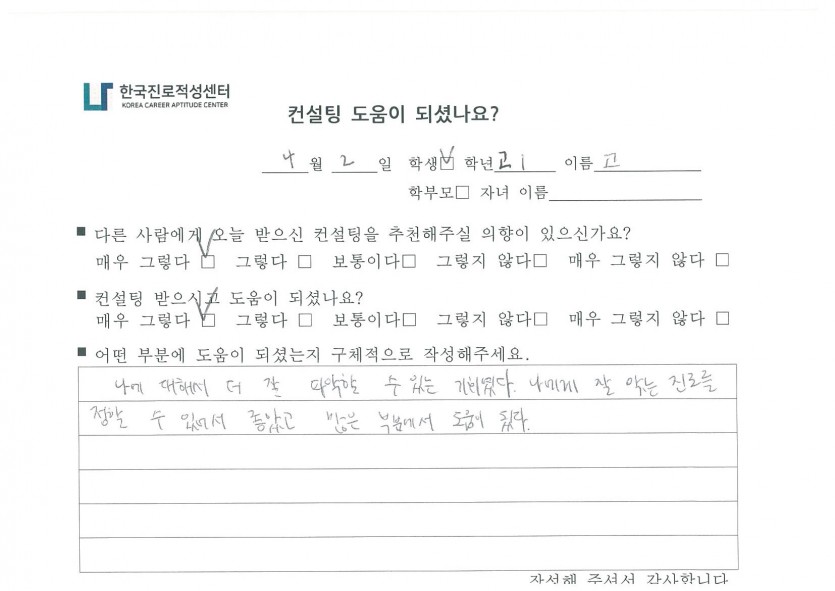 한국진로적성센터
KOREA CAREER APTITUDE CENTER
컨설팅 도움이 되셨나요?
4 월 2 일 학생☑ 학년 고1 이름 고
학부모□ 자녀 이름
■ 다른 사람에게 오늘 받으신 컨설팅을 추천해주실 의향이 있으신가요?
매우 그렇다 ☑ 그렇다 □ 보통이다□ 그렇지 않다□ 매우 그렇지 않다 □
■ 컨설팅 받으시고 도움이 되셨나요?
매우 그렇다 ☑ 그렇다 □ 보통이다□ 그렇지 않다□ 매우 그렇지 않다 □
■ 어떤 부분에 도움이 되셨는지 구체적으로 작성해주세요.
나에 대해서 더 잘 파악할 수 있는 기회였다. 나에게 잘 맞는 진로를
정할 수 있어서 좋았고 많은 부분에서 도움이 됐다.
작성해 주셔서 감사합니다